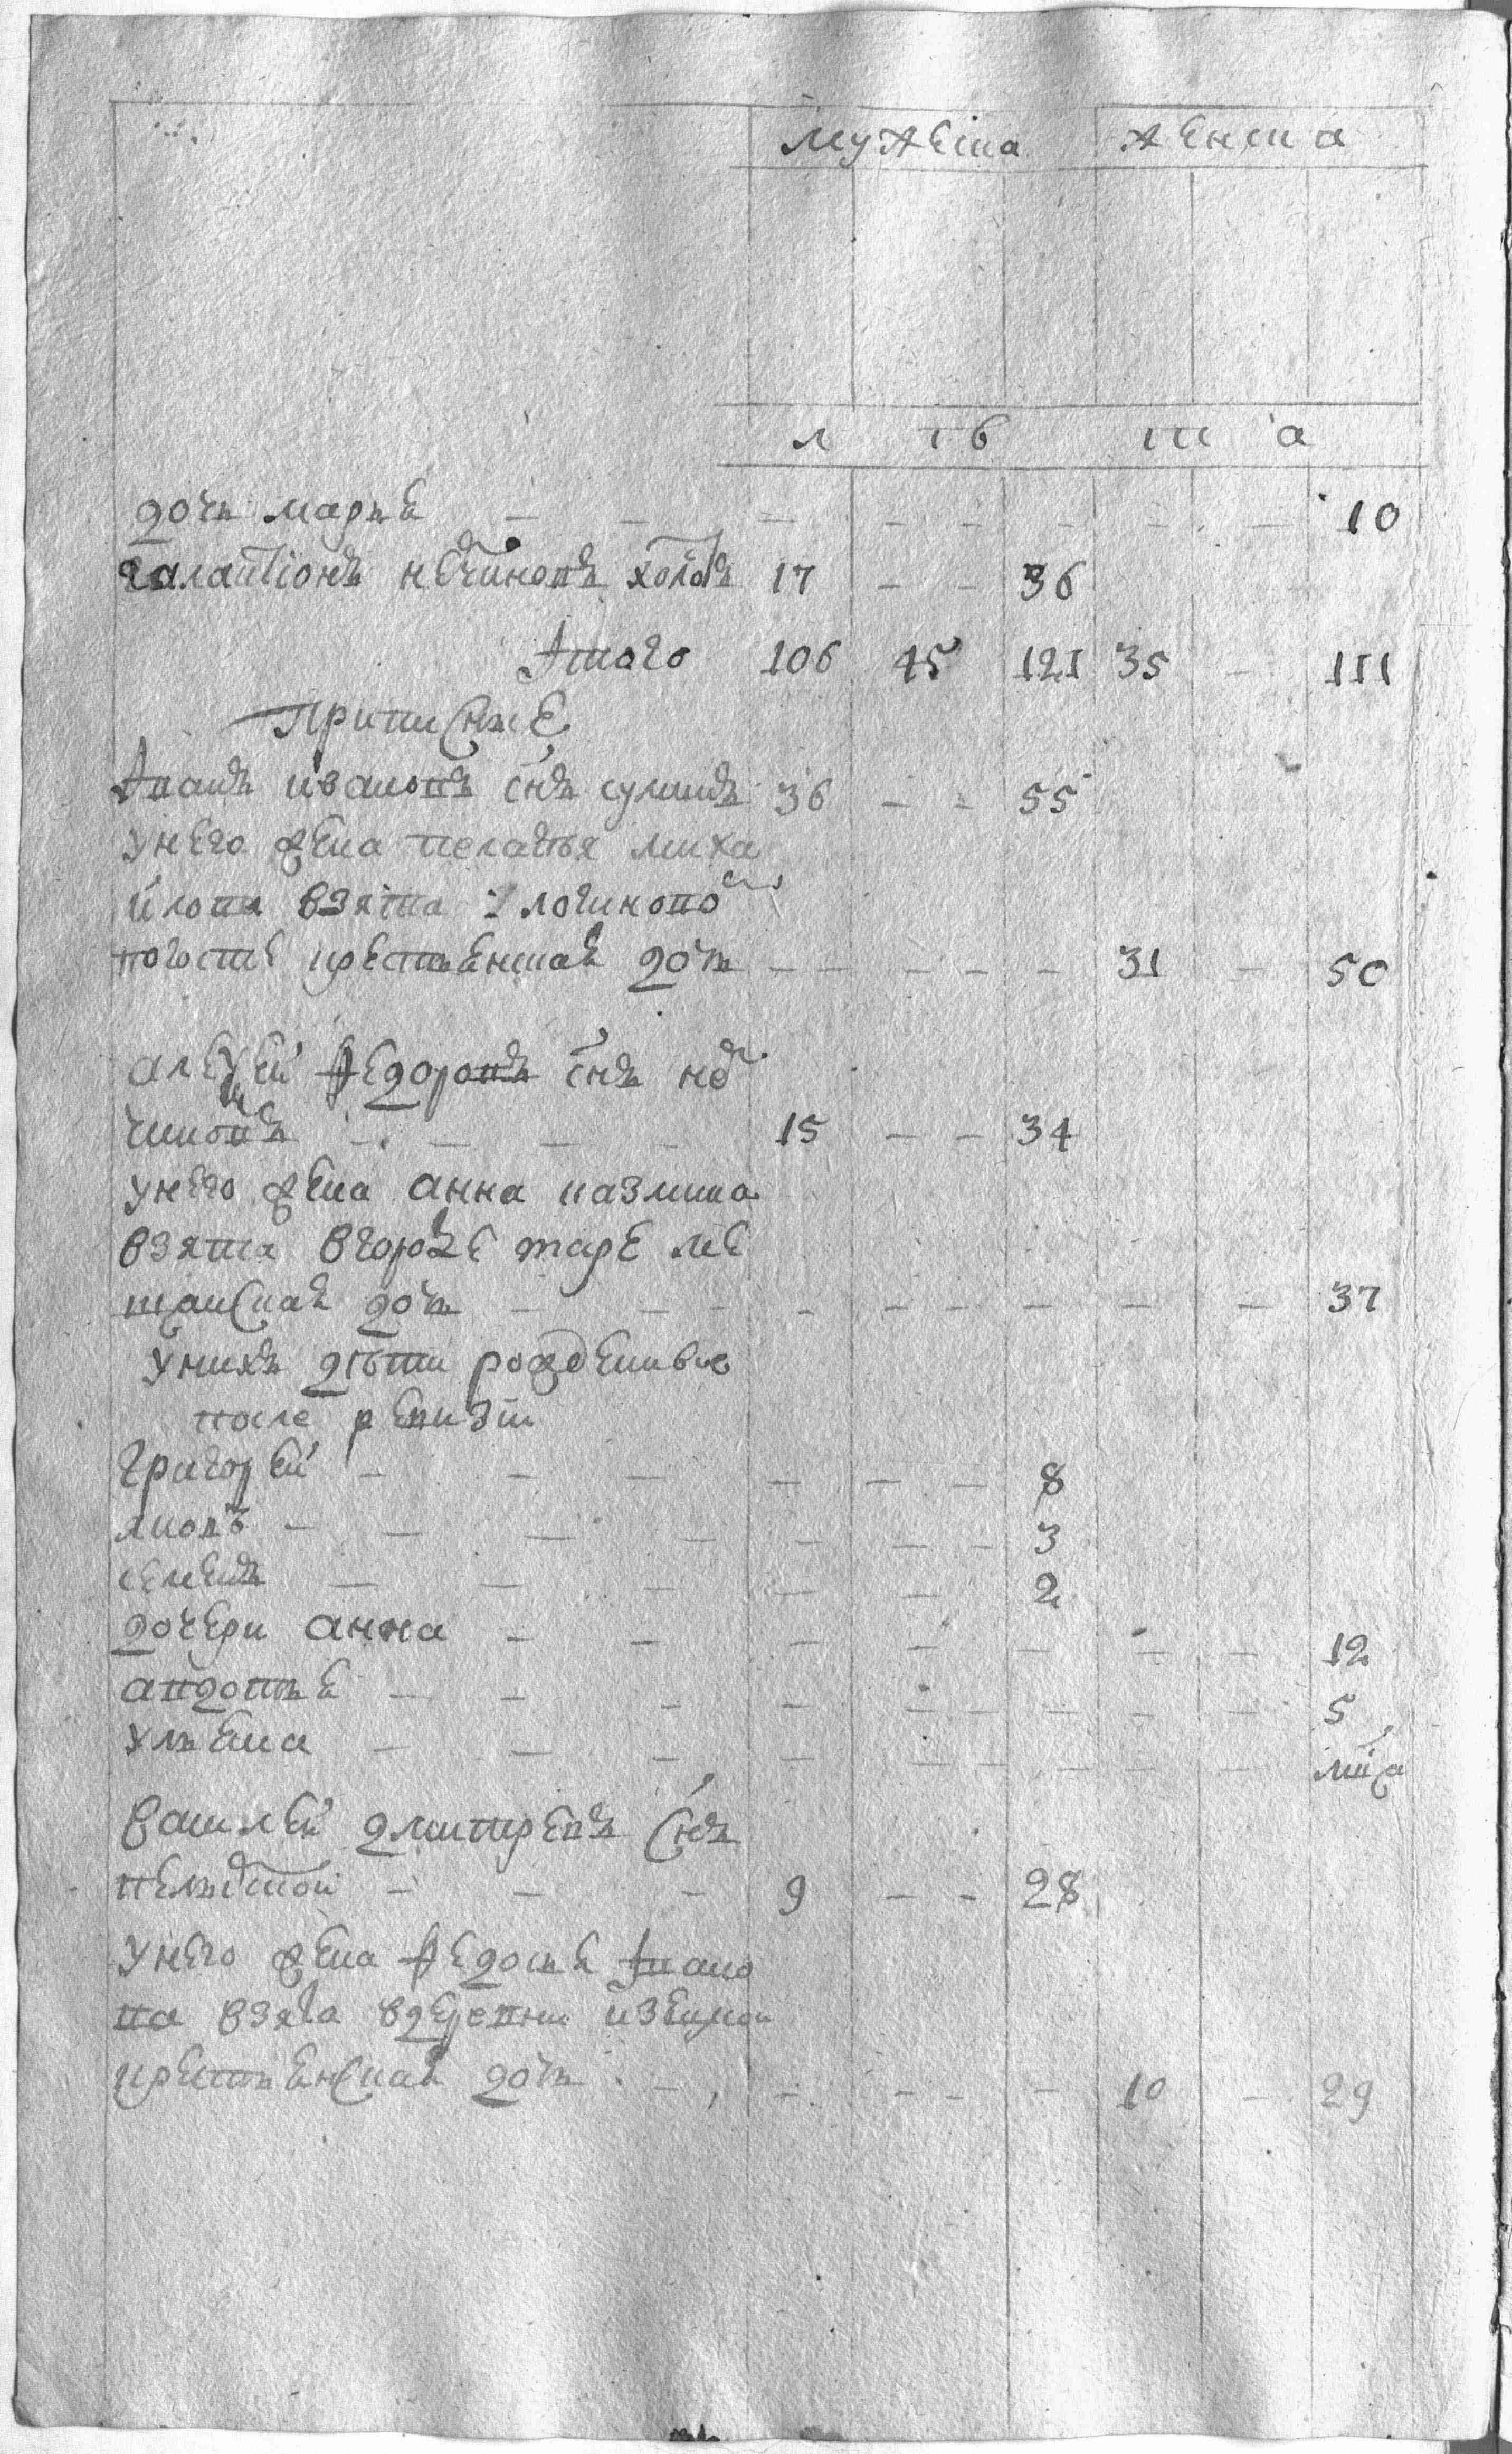 мужеска женска
л ѣ т а
дочь марья — — — — — — — — 10
галактїонъ нѣчиновъ холостъ 17 — — 36
Итого 106 45 121 35 — 111
Приписные
Иванъ ивановъ снъ 36 — — 55
унего жена пелагья миха
йлова взята логиново
погосте крестьянская дочь — — — — — 31 — 50
алеѯей Федоровъ снъ нѣ
чиновъ — — — — 15 — — 34
унего жена анна казмина
взята вгороде таре ме
щанская дочь — — — — — — — — 37
Унихъ дѣти рожденныя
после ревизіи
Григорей — — — — — — 8
яковъ — — — — — — — — 3
семенъ — — — — — 2
дочери анна — — — — — — — 12
авдотья — — — — — — — — — 5
Ульяна — — — — — — — — — мца
Василей дмитревъ снъ
— — — 9 — — 28
Унего жена Федосья Ивано
ва взята вдеревни
крестьянская дочь — — — — — 10 — 29